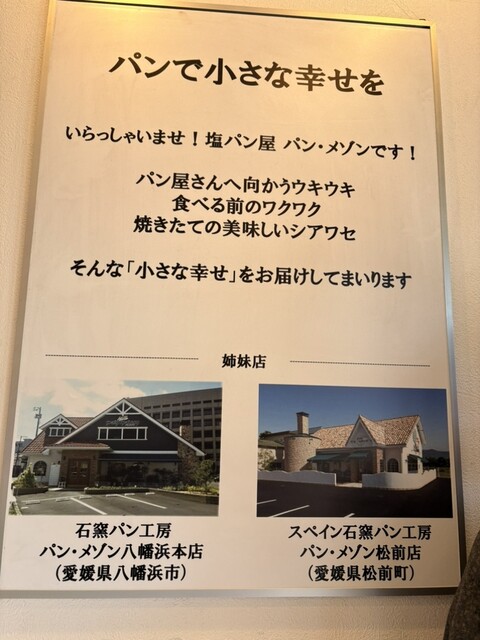 パンで小さな幸せを
いらっしゃいませ！塩パン屋 パン・メゾンです！
パン屋さんへ向かうウキウキ
食べる前のワクワク
焼きたての美味しいシアワセ
そんな「小さな幸せ」をお届けしてまいります
姉妹店
石窯パン工房
パン・メゾン八幡浜本店
（愛媛県八幡浜市）
スペイン石窯パン工房
パン・メゾン松前店
（愛媛県松前町）